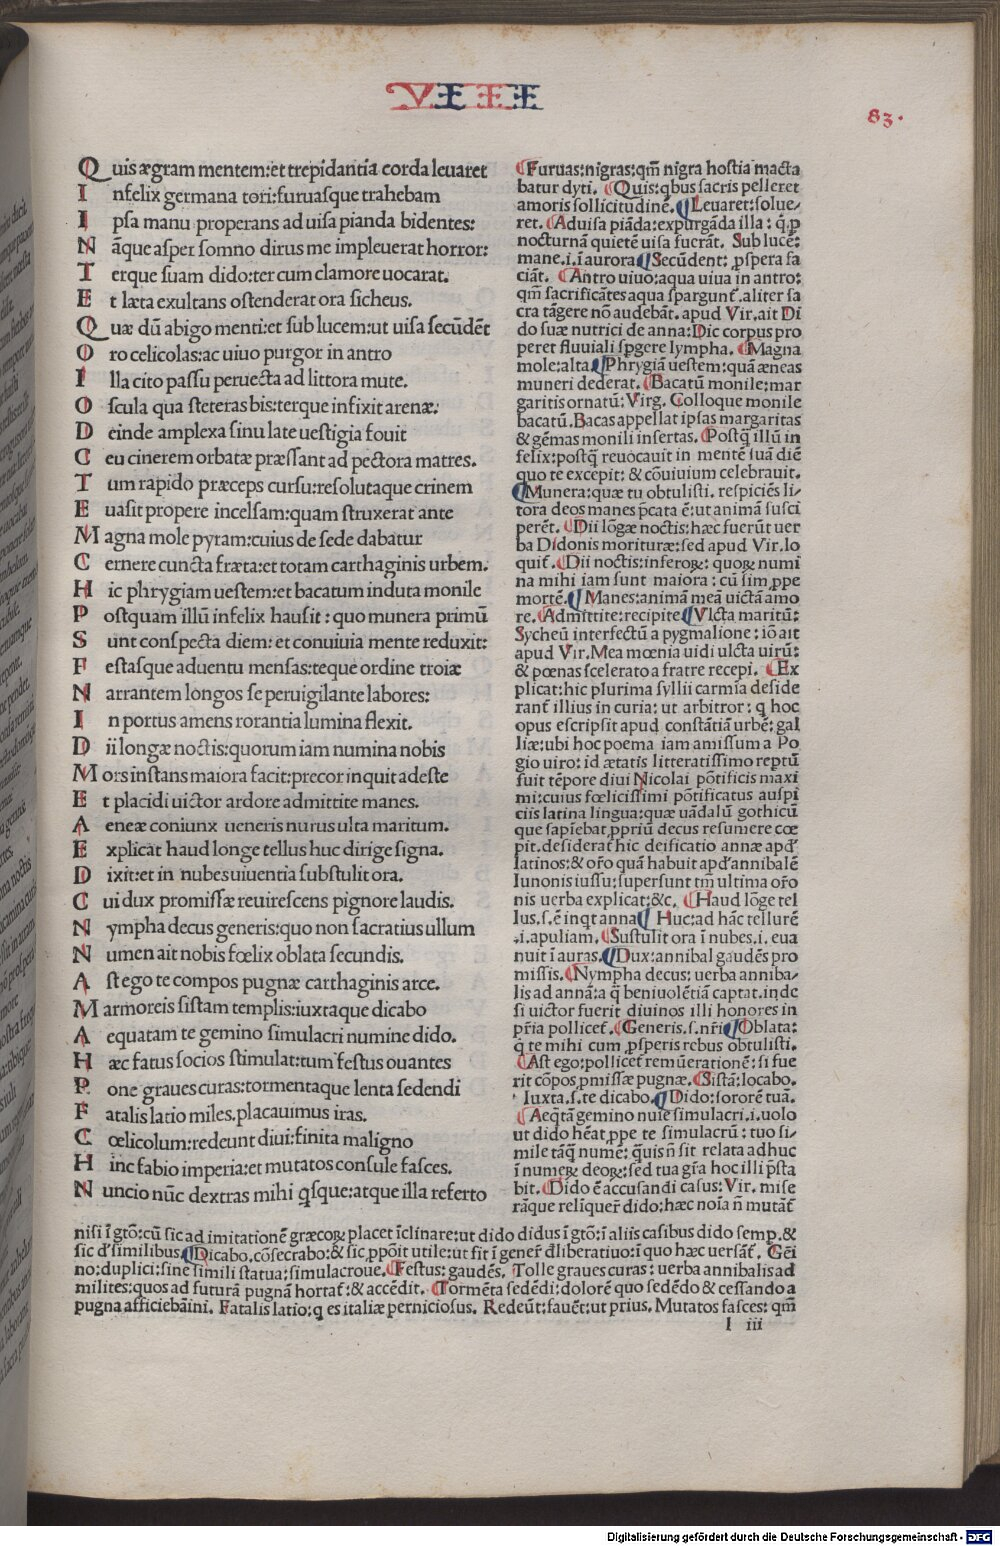 VIII
83.
Quis ægram mentem:et trepidantia corda leuaret
Infelix germana tori:furuasque trahebam
Ipsa manu properans ad uisa pianda bidentes:
Nãque asper somno dirus me impleuerat horror:
Terque suam dido:ter cum clamore uocarat.
Et læta exultans ostenderat ora sicheus.
Quæ dũ abigo menti:et sub lucem:ut uisa secũdẽt
Oro celicolas:ac uiuo purgor in antro
Illa cito passu peruecta ad littora mute.
Oscula qua steteras bis:terque infixit arenæ:
Deinde amplexa sinu late uestigia fouit
Ceu cinerem orbatæ præssant ad pectora matres.
Tum rapido præceps cursu:resolutaque crinem
Euasit propere incelsam:quam struxerat ante
Magna mole pyram:cuius de sede dabatur
Cernere cuncta fræta:et totam carthaginis urbem.
Hic phrygiam uestem:et bacatum induta monile
Postquam illũ infelix hausit: quo munera primũ
Sunt conspecta diem: et conuiuia mente reduxit:
Festasque aduentu mensas:teque ordine troiæ
Narrantem longos se peruigilante labores:
In portus amens rorantia lumina flexit.
Dii longæ noctis:quorum iam numina nobis
Mors instans maiora facit:precor inquit adeste
Et placidi uictor ardore admittite manes.
Aeneæ coniunx ueneris nurus ulta maritum.
Explicat haud longe tellus huc dirige signa.
Dixit:et in nubes uiuentia substulit ora.
Cui dux promissæ reuirescens pignore laudis.
Nympha decus generis:quo non sacratius ullum
Numen ait nobis fœlix oblata secundis.
Ast ego te compos pugnæ carthaginis arce.
Marmoreis sistam templis:iuxtaque dicabo
Aequatam te gemino simulacri numine dido.
Hæc fatus socios stimulat:tum festus ouantes
Pone graues curas:tormentaque lenta sedendi
Fatalis latio miles.placauimus iras.
Cœlicolum:redeunt diui:finita maligno
Hinc fabio imperia:et mutatos consule fasces.
Nuncio nũc dextras mihi qsque:atque illa referto
Furuas:nigras:qm̃ nigra hostia macta
batur dyti. Quis:qbus sacris pelleret
amoris sollicitudinẽ. Leuaret:solue-
ret. Ad uisa piãda:expurgãda illa: q̃ p
nocturnã quietẽ uisa fuerãt. Sub lucẽ:
mane.i.ĩ aurora Secũdent: pspera fa
ciãt. Antro uiuo:aqua uiua in antro:
qm̃ sacrificãtes aqua spargunt̃.aliter sa
cra tãgere nõ audebãt. apud Vir.ait Di
do suæ nutrici de anna:Dic corpus pro
peret fluuiali spgere lympha. Magna
mole:alta Phrygiã uestem:quã æneas
muneri dederat. Bacatũ monile:mar
garitis ornatũ:Virg. Colloque monile
bacatũ. Bacas appellat ipsas margaritas
& gẽmas monili insertas. Postq̃ illũ in
felix:postq̃ reuocauit in mentẽ suã diẽ
quo te excepit: & cõuiuium celebrauit.
Munera:quæ tu obtulisti. respiciẽs li-
tora deos manes pcata ẽ:ut animã susci
perẽt. Dii lõgæ noctis:hæc fuerũt uer
ba Didonis morituræ:sed apud Vir.lo
quit̃. Dii noctis:inferoꝝ: quoꝝ numi
na mihi iam sunt maiora: cũ sim ppe
mortẽ. Manes:animã meã uictã amo
re. Admittite:recipite Vlcta maritũ:
Sycheũ interfectũ a pygmalione: iõ ait
apud Vir.Mea mœnia uidi ulcta uirũ:
& pœnas scelerato a fratre recepi. Ex
plicat:hic plurima syllii carmĩa deside
rant̃ illius in curia: ut arbitror: q hoc
opus escripsit apud constãtiã urbẽ: gal
liæ:ubi hoc poema iam amissum a Po
gio uiro: id ætatis litteratissimo reptũ
fuit tẽpore diui Nicolai põtificis maxi
mi:cuius fœlicissimi põtificatus auspi
ciis latina lingua:quæ uãdalũ gothicũ
que sapiebat ppriũ decus resumere cœ
pit.desiderat̃ hic deificatio annæ apd'
latinos:& or̃o quã habuit apd'annibalẽ
Iunonis iussu:supersunt tm̃ ultima or̃o
nis uerba explicat:&c. Haud lõge tel
lus.s.ẽ inqt anna Huc:ad hãc tellurẽ
.i.apuliam. Sustulit ora ĩ nubes.i.eua
nuit ĩ auras. Dux:annibal gaudẽs pro
missis. Nympha decus: uerba anniba-
lis ad annã:a q̃ beniuolẽtiã captat.inde
si uictor fuerit diuinos illi honores in
pr̃ia pollicet̃. Generis.s.nr̃i Oblata:
q̃ te mihi cum psperis rebus obtulisti.
Ast ego:pollicet̃ remũerationẽ: si fue
rit cõpos pmissæ pugnæ. Sistã:locabo.
Iuxta.s.te dicabo. Dido:sororẽ tuã.
Aeq̃tã gemino nuĩe simulacri.i.uolo
ut dido hẽat ppe te simulacrũ: tuo si-
mile tãq̃ numẽ: q̃uis ñ sit relata adhuc
ĩ numeꝝ deoꝝ:sed tua gr̃a hoc illi p̃sta
bit. Dido ẽ accusandi casus: Vir. mise
rãque relĩquer̃ dido:hæc noĩa ñ mutãt̃
nisi ĩ gr̃o:cũ sic ad imitationẽ græcoꝝ placet ĩclinare:ut dido didus ĩ gt̃o:ĩ aliis casibus dido semp.&
sic d'similibus. Dicabo.cõsecrabo:& sic ppõit utile:ut fit ĩ gener̃ dliberatiuo:ĩ quo hæc uersãt̃. Gẽi
no:duplici:sine simili statua:simulacroue. Festus: gaudẽs. Tolle graues curas: uerba annibalis ad
milites:quos ad futurã pugnã hortat̃: & accẽdit. Tormẽta sedẽdi:dolorẽ quo sedẽdo & cessando a
pugna afficiebãini. Fatalis latio:q es italiæ perniciosus. Redeũt:fauẽt:ut prius. Mutatos fasces: qm̃
I iii
Digitalisierung gefördert durch die Deutsche Forschungsgemeinschaft - DFG